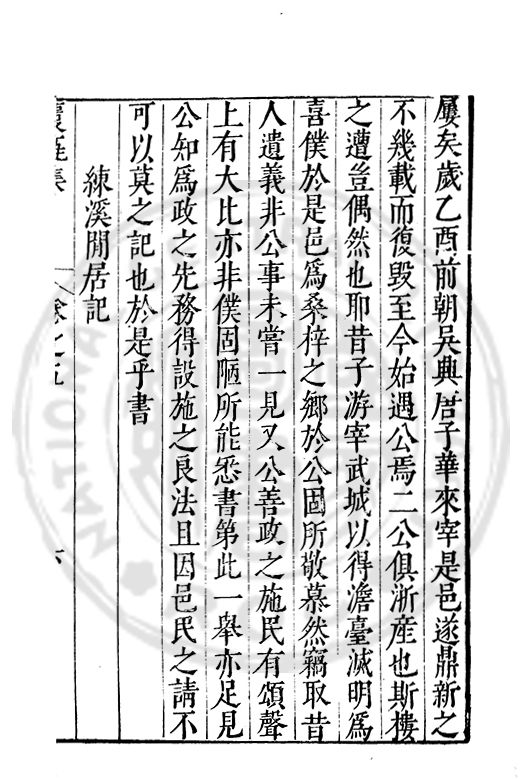 屢矣歲乙酉前朝吳興唐子華來宰是邑遂鼎新之
不幾載而復毀至今始遇公焉二公俱浙産也斯樓
之遭豈偶然也耶昔子游宰武城以得澹臺滅明爲
喜僕於是邑爲桑梓之鄉於公固所敬慕然竊取昔
人遺義非公事未嘗一見又公善政之施民有頌聲
上有大比亦非僕固陋所能悉書第此一舉亦足見
公知爲政之先務得設施之良法且因邑民之請不
可以莫之記也於是乎書
練溪閒居記
卷之五
六